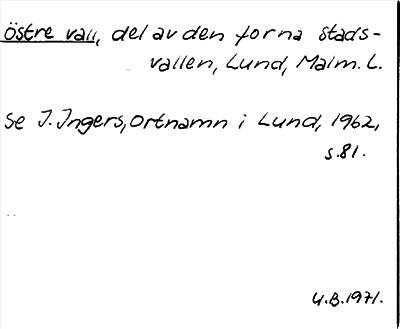 östre vall, del av den forna stads-
vallen, Lund, Malm. L.
Se I. Ingers, Ortnamn i Lund, 1962,
s.81.
U.B.1971.